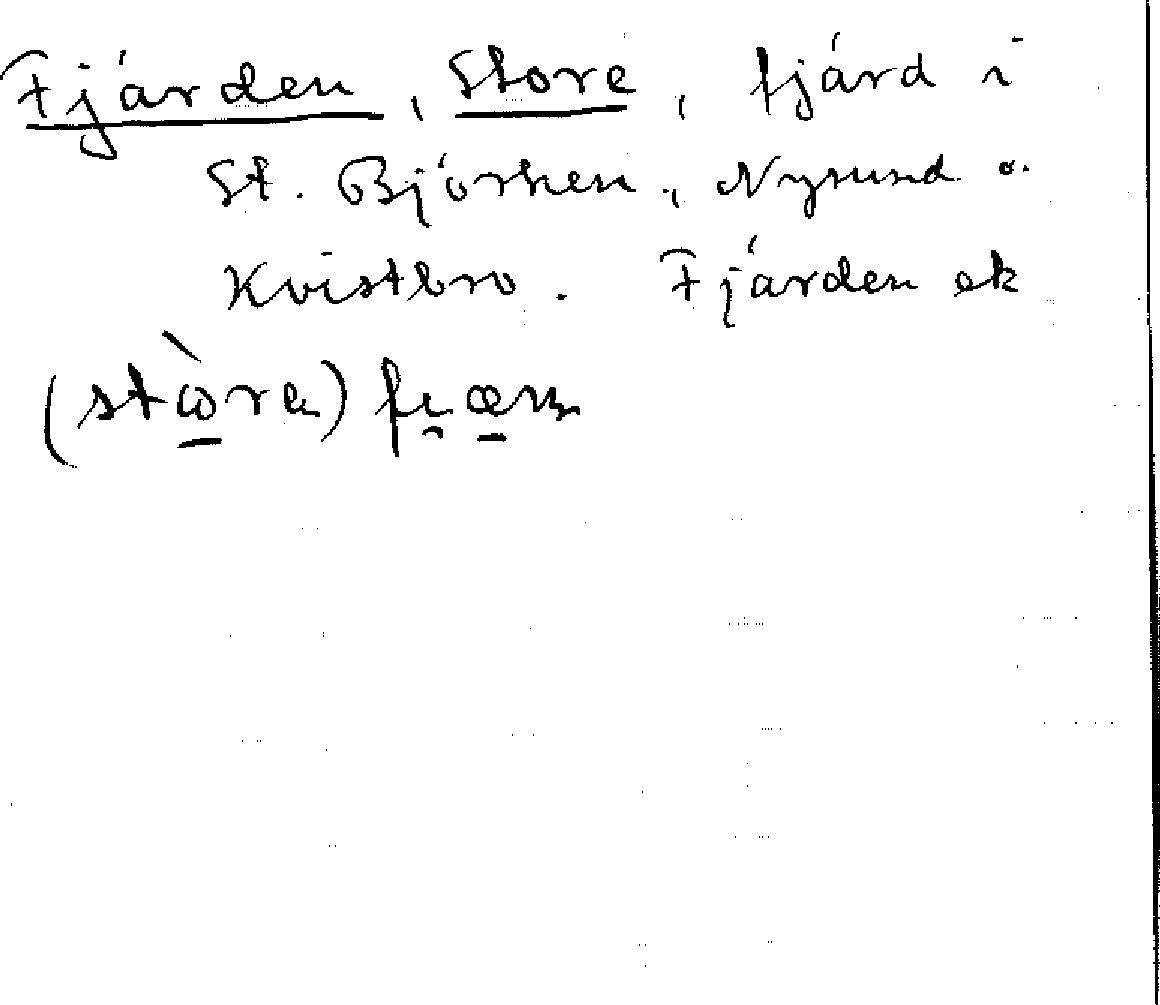 Fjärden, Store, fjärd i
St. Björken, Nysund o.
Kvistbro. Fjärden ek
(stòra) fjæn